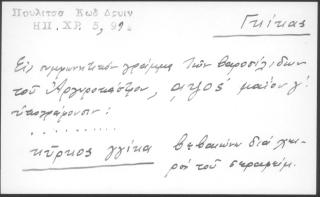 Πουλίτσα Κωδ Δρυιν
ΗΠ. ΧΡ. 5, 99
Γκίκας
Εις συμφωνητικόν γράμμα των βαροσιλιδων
του Αργυροκάστρου, αψξσ' μαΐου γ'
υπογράφουσιν:
. . . . . . . .
κύρκος γγίκα βεβαιώνω διά χει-
ρός του σεραφείμ.